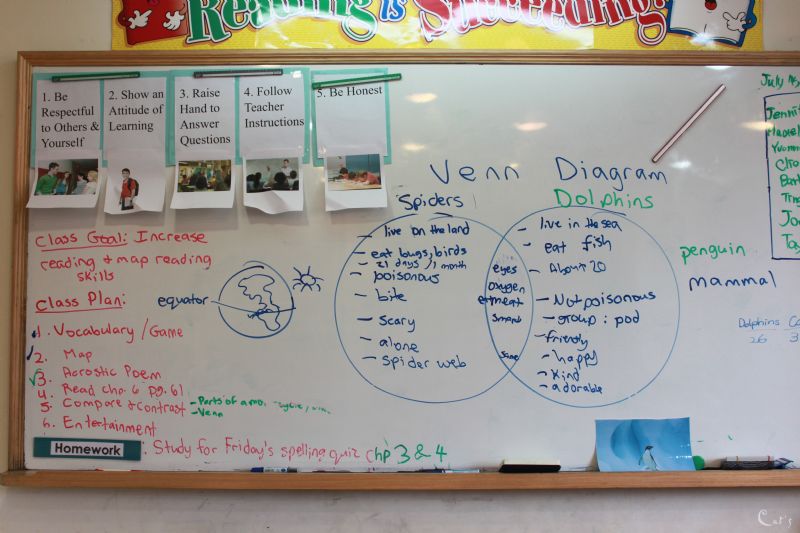 Reading is Succeeding!
1. Be
Respectful
to Others &
Yourself
2. Show an
Attitude of
Learning
3. Raise
Hand to
Answer
Questions
4. Follow
Teacher
Instructions
5. Be Honest
Venn Diagram
Spiders
- live on the land
- eat bugs, birds
- 21 days / 1 month
- poisonous
- bite
- scary
- alone
- spider web
eyes
oxygen
eat meat
smart
Dolphins
- live in the sea
- eat fish
- About 20
- Not poisonous
- group: pod
- friendly
- happy
- kind
- adorable
penguin
mammal
Dolphins
26
July
Class Goal: Increase
reading & map reading
skills
equator
Class Plan:
1. Vocabulary / Game
2. Map
3. Acrostic Poem
4. Read chp. 6 pg. 61
5. Compare & contrast
- Parts of a
- Venn
6. Entertainment
Homework : Study for Friday's spelling quiz chp 3 & 4
Cat's